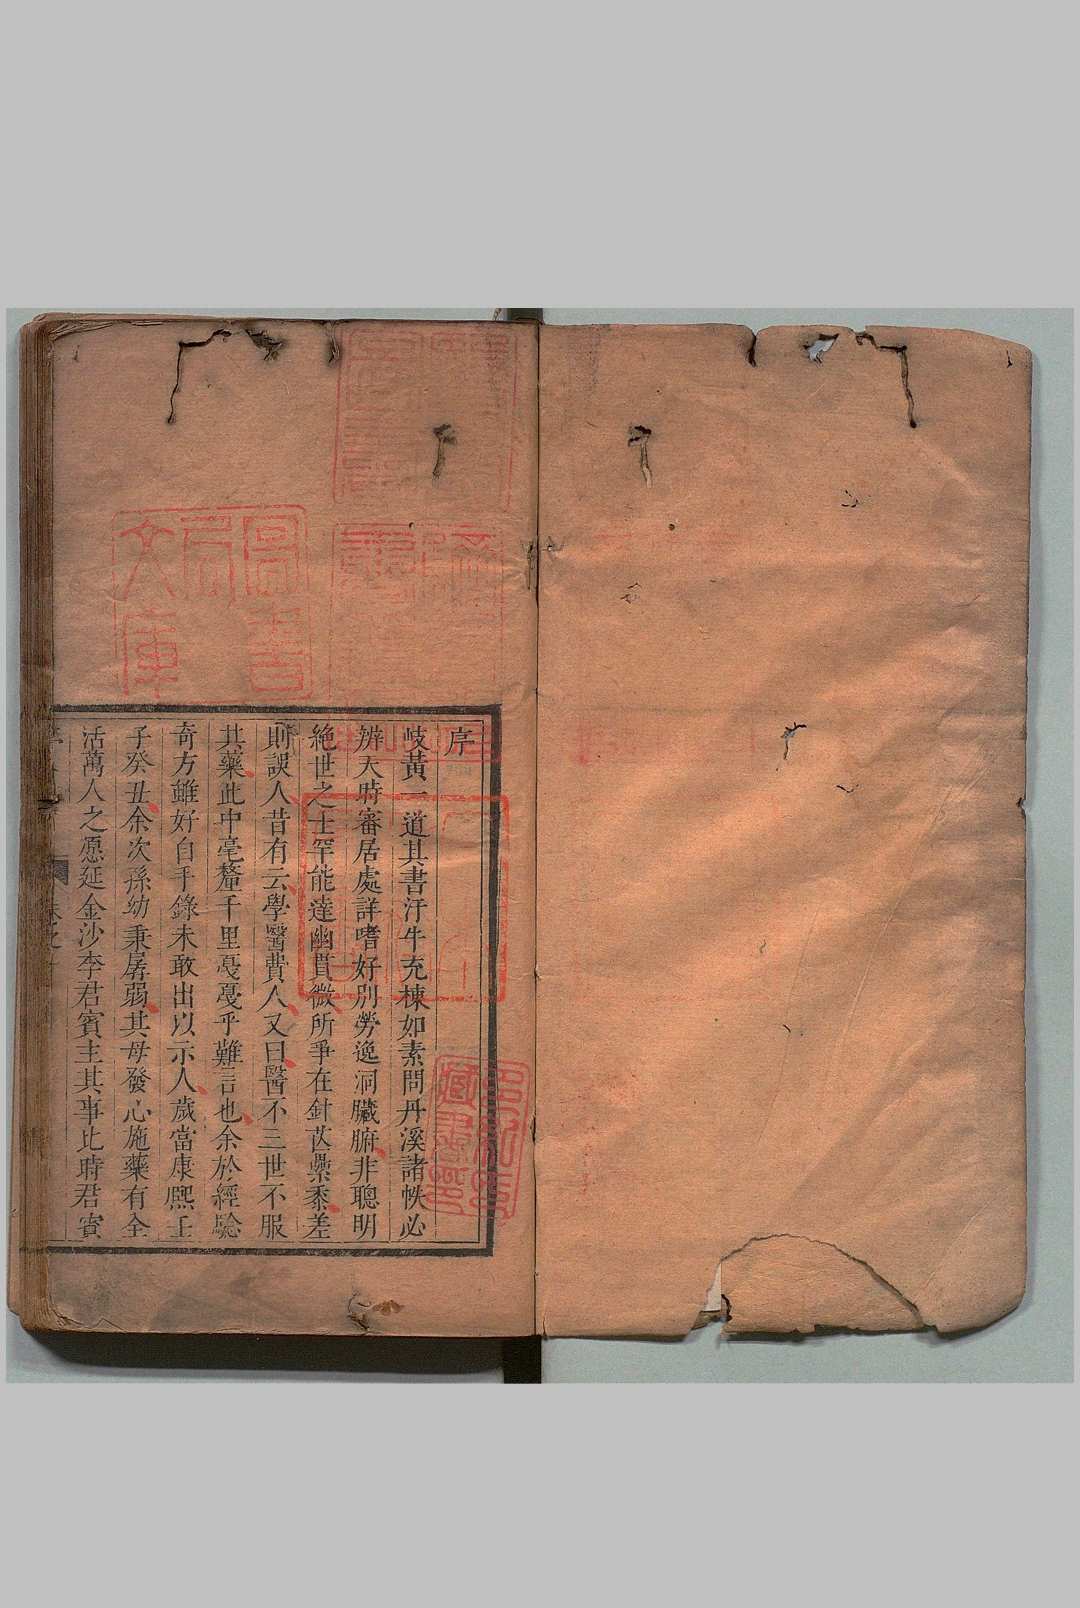 序
岐黃一道其書汗牛充棟如素問丹溪諸帙必
辨天時審居處詳嗜好別勞逸洞臟腑非聰明
絶世之士罕能達幽貫微所爭在針芥纍黍差
則誤人昔有云學醫費人又曰醫不三世不服
其藥此中毫釐千里戞戞乎難言也余於經驗
奇方雖好自手錄未敢出以示人歲當康熙壬
子癸丑余次孫幼秉孱弱其母發心施藥有全
活萬人之愿延金沙李君賓主其事比時君賓
圖書
局
文庫